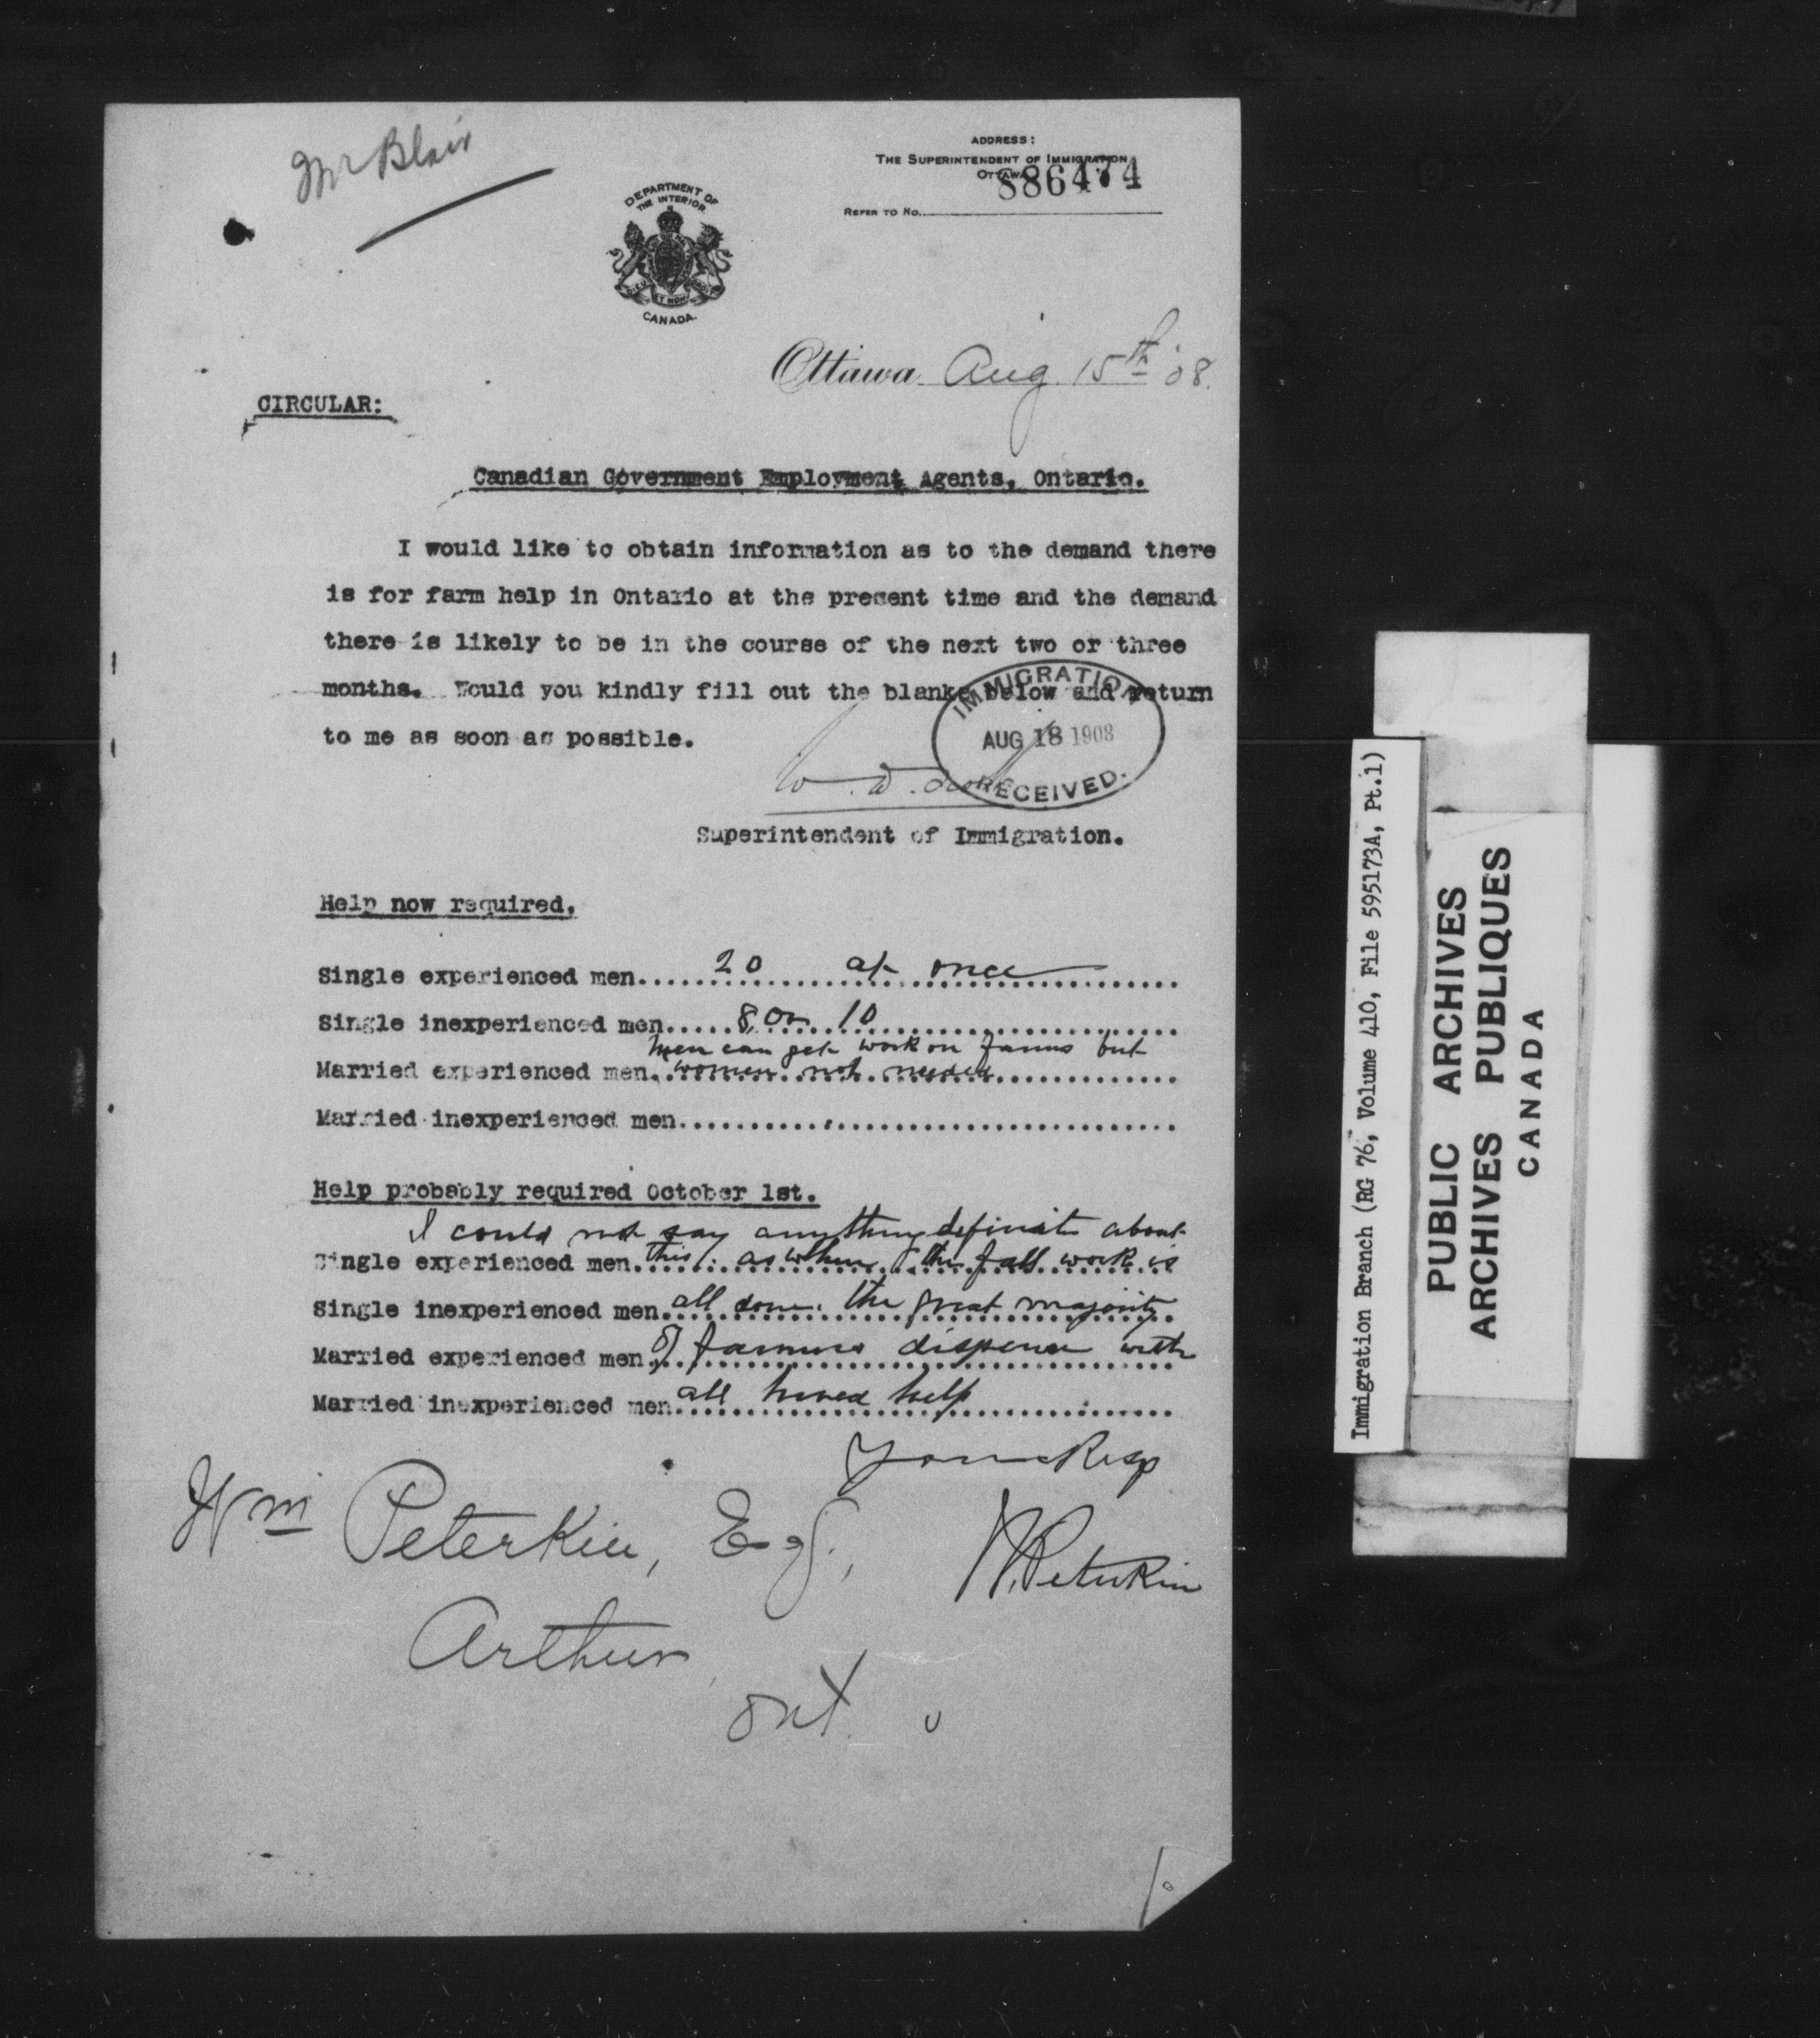 Mr Blair
ADDRESS:
THE SUPERINTENDENT OF IMMIGRATION
OTTAWA
886474
REFER TO NO.
DEPARTMENT OF
THE INTERIOR
DIEU ET MON DROIT
CANADA.
Ottawa Aug. 15th '08.
CIRCULAR:
Canadian Government Employment Agents, Ontario.
I would like to obtain information as to the demand there
is for farm help in Ontario at the present time and the demand
there is likely to be in the course of the next two or three
months. Would you kindly fill out the blanks below and return
to me as soon as possible.
IMMIGRATION
AUG 18 1908
RECEIVED.
W. D. Scott
Superintendent of Immigration.
Help now required.
Single experienced men.....20 at once
Single inexperienced men.....8 or 10
men can get work on farms but
Married experienced men. women not needed
Married inexperienced men
Help probably required October 1st.
I could not say anything definite about
Single experienced men. this. as when the fall work is
Single inexperienced men. all done. the great majority
Married experienced men. of farmers dispense with
Married inexperienced men all hired help
Yours Resp
Wm Peterkin, Esq.,
W. Peterkin
Arthur,
Ont.
Immigration Branch (RG 76, Volume 410, File 595173A, Pt.1)
PUBLIC ARCHIVES
ARCHIVES PUBLIQUES
CANADA